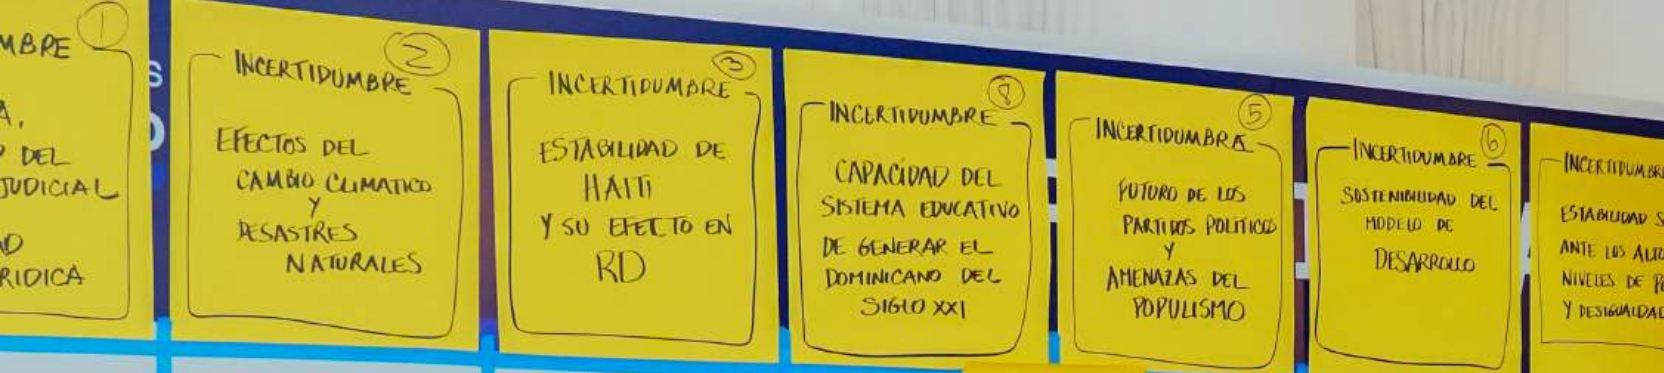 1
MBRE
A.
DEL
JUDICIAL
RIDICA
S
2
INCERTIDUMBRE
EFECTOS DEL
CAMBIO CLIMATICO
Y
DESASTRES
NATURALES
3
INCERTIDUMBRE
ESTABILIDAD DE
HAITI
Y SU EFECTO EN
RD
INCERTIDUMBRE
CAPACIDAD DEL
SISTEMA EDUCATIVO
DE GENERAR EL
DOMINICANO DEL
SIGLO XXI
5
INCERTIDUMBRE
FUTURO DE LOS
PARTIDOS POLITICOS
Y
AMENAZAS DEL
POPULISMO
6
INCERTIDUMBRE
SOSTENIBILIDAD DEL
MODELO DE
DESARROLLO
INCERTIDUMBRE
ESTABILIDAD S
ANTE LOS ALTO
NIVELES DE PO
Y DESIGUALDAD